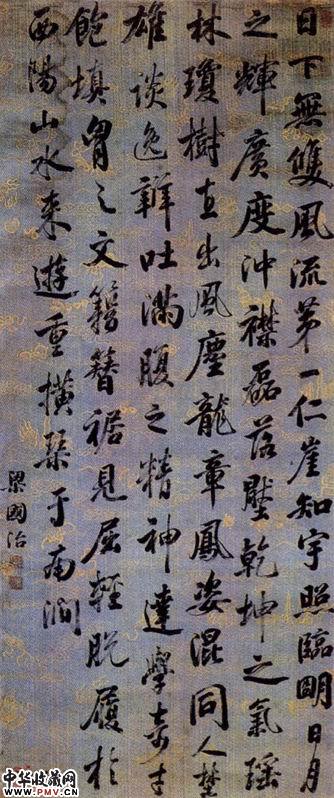 日下無雙風流第一仁崖知宇照臨朙日月
之輝廣度沖襟磊落壓乾坤之氣瑶
林瓊樹直出風塵龍章鳳姿混同人埜
雄談逸辭吐滿腹之精神達學奇才
飽填胷之文籍簪裾見屈輕脫履於
西陽山水来遊重橫琴于南澗
梁國治
中华收藏网
www.PMV.CN